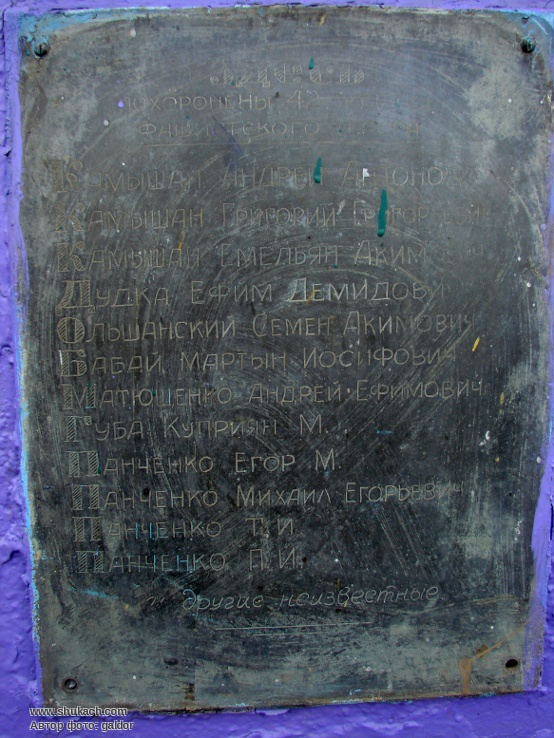 похоронены
фашистского
Камышан Андрей Антонович
Камышан Григорий Григорьевич
Камышан Емельян Акимович
Дудка Ефим Демидович
Ольшанский Семен Акимович
Бабай Мартын Иосифович
Матюшенко Андрей Ефимович
Губа Куприян М.
Панченко Егор М.
Панченко Михаил Егорьевич
Панченко Т. И.
Панченко П. И.
и другие неизвестные
www.shukach.com
Автор фото: galdor